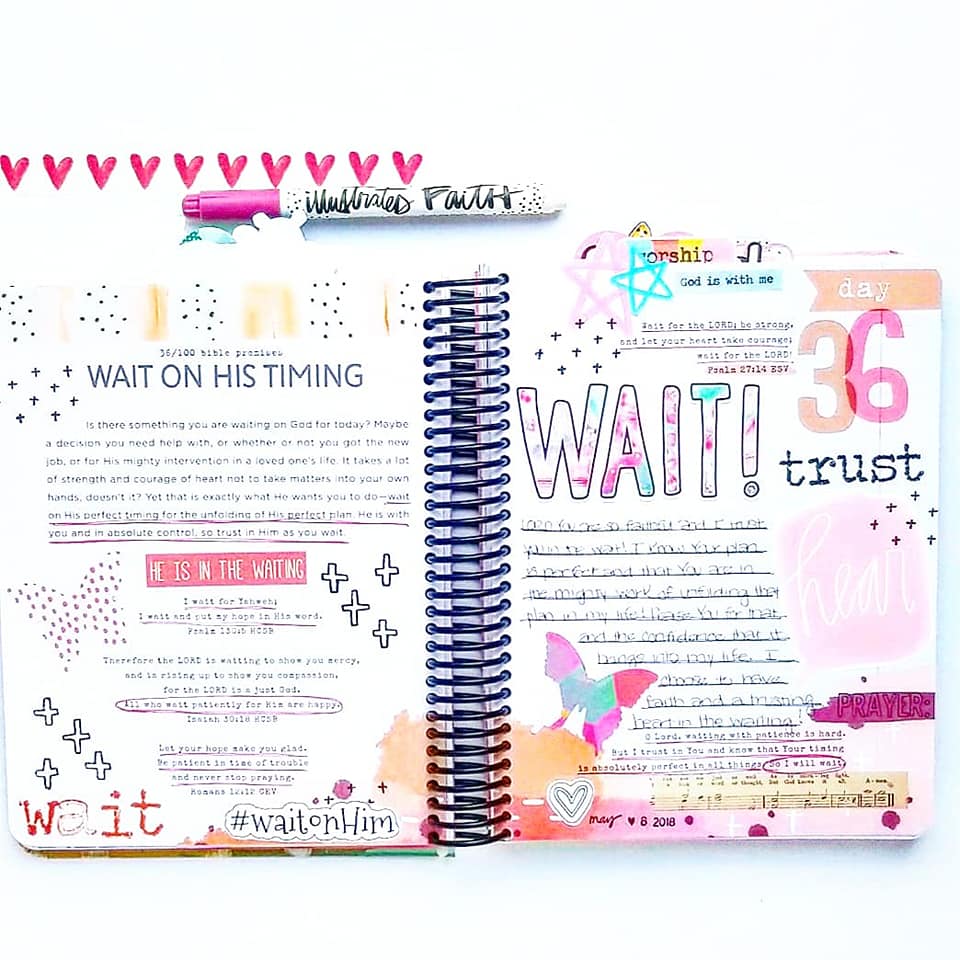 illustrated FAITH
36/100 bible promises
WAIT ON HIS TIMING
Is there something you are waiting on God for today? Maybe
a decision you need help with, or whether or not you got the new
job, or for His mighty intervention in a loved one's life. It takes a lot
of strength and courage of heart not to take matters into your own
hands, doesn't it? Yet that is exactly what He wants you to do—wait
on His perfect timing for the unfolding of His perfect plan. He is with
you and in absolute control, so trust in Him as you wait.
HE IS IN THE WAITING
I wait for Yahweh;
I wait and put my hope in His word.
Psalm 130:5 HCSB
Therefore the LORD is waiting to show you mercy,
and is rising up to show you compassion,
for the LORD is a just God.
All who wait patiently for Him are happy.
Isaiah 30:18 HCSB
Let your hope make you glad.
Be patient in time of trouble
and never stop praying.
Romans 12:12 CEV
wait
#waitonHim
worship
God is with me
day
36
Wait for the LORD; be strong,
and let your heart take courage;
wait for the LORD!
Psalm 27:14 ESV
WAIT!
trust
hear
Lord You are so faithful and I trust
You in the wait! I know Your plan
is perfect and that You are in
the mighty work of unfolding that
plan in my life! Praise You for that
and the confidence that it
brings into my life. I
choose to have
faith and a trusting
heart in the waiting!
PRAYER:
O Lord, waiting with patience is hard.
But I trust in You and know that Your timing
is absolutely perfect in all things. So I will wait.
A - men.
may ♥ 6 2018